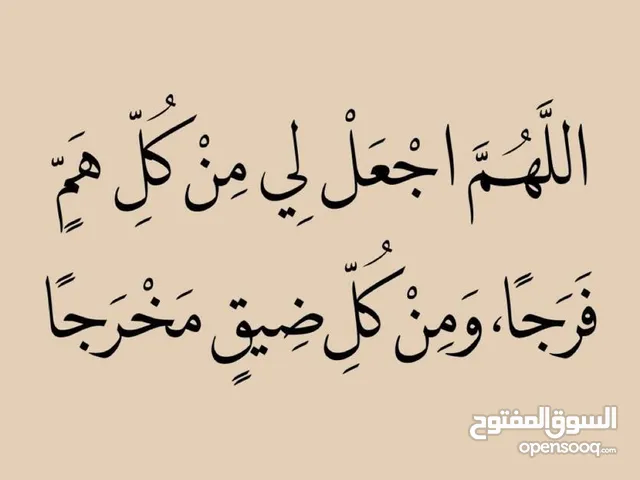 اللَّهُمَّ اجْعَلْ لِي مِنْ كُلِّ هَمٍّ
فَرَجًا، وَمِنْ كُلِّ ضِيقٍ مَخْرَجًا
السوق المفتوح
opensooq.com